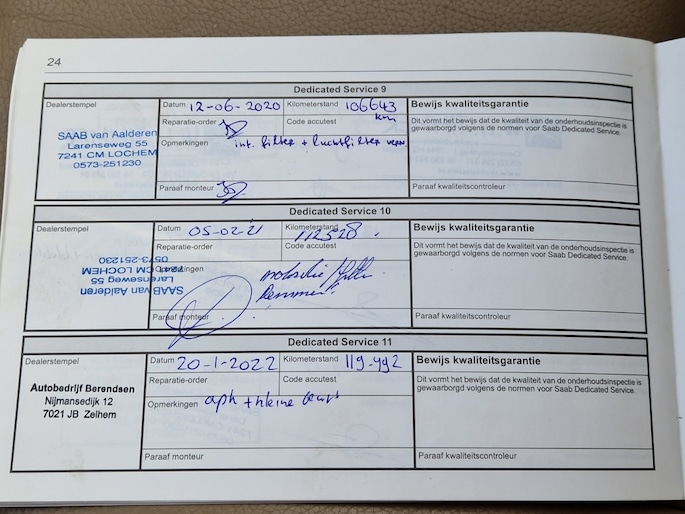 24
Dedicated Service 9
Dealerstempel
SAAB van Aalderen
Larenseweg 55
7241 CM LOCHEM
0573-251230
Datum 12-06-2020
Kilometerstand 106643 km
Reparatie-order
Code accutest
Opmerkingen int. filter + luchtfilter verv.
Paraaf monteur
Bewijs kwaliteitsgarantie
Dit vormt het bewijs dat de kwaliteit van de onderhoudsinspectie is
gewaarborgd volgens de normen voor Saab Dedicated Service.
Paraaf kwaliteitscontroleur
Dedicated Service 10
Dealerstempel
SAAB van Aalderen
Larenseweg 55
7241 CM LOCHEM
0573-251230
Datum 05-02-'21
Kilometerstand 112528.
Reparatie-order
Code accutest
Opmerkingen motorolie / filter
Remmen
Paraaf monteur
Bewijs kwaliteitsgarantie
Dit vormt het bewijs dat de kwaliteit van de onderhoudsinspectie is
gewaarborgd volgens de normen voor Saab Dedicated Service.
Paraaf kwaliteitscontroleur
Dedicated Service 11
Dealerstempel
Autobedrijf Berendsen
Nijmansedijk 12
7021 JB Zelhem
Datum 20-1-2022
Kilometerstand 119-992
Reparatie-order
Code accutest
Opmerkingen apk + kleine beurt
Paraaf monteur
Bewijs kwaliteitsgarantie
Dit vormt het bewijs dat de kwaliteit van de onderhoudsinspectie is
gewaarborgd volgens de normen voor Saab Dedicated Service.
Paraaf kwaliteitscontroleur